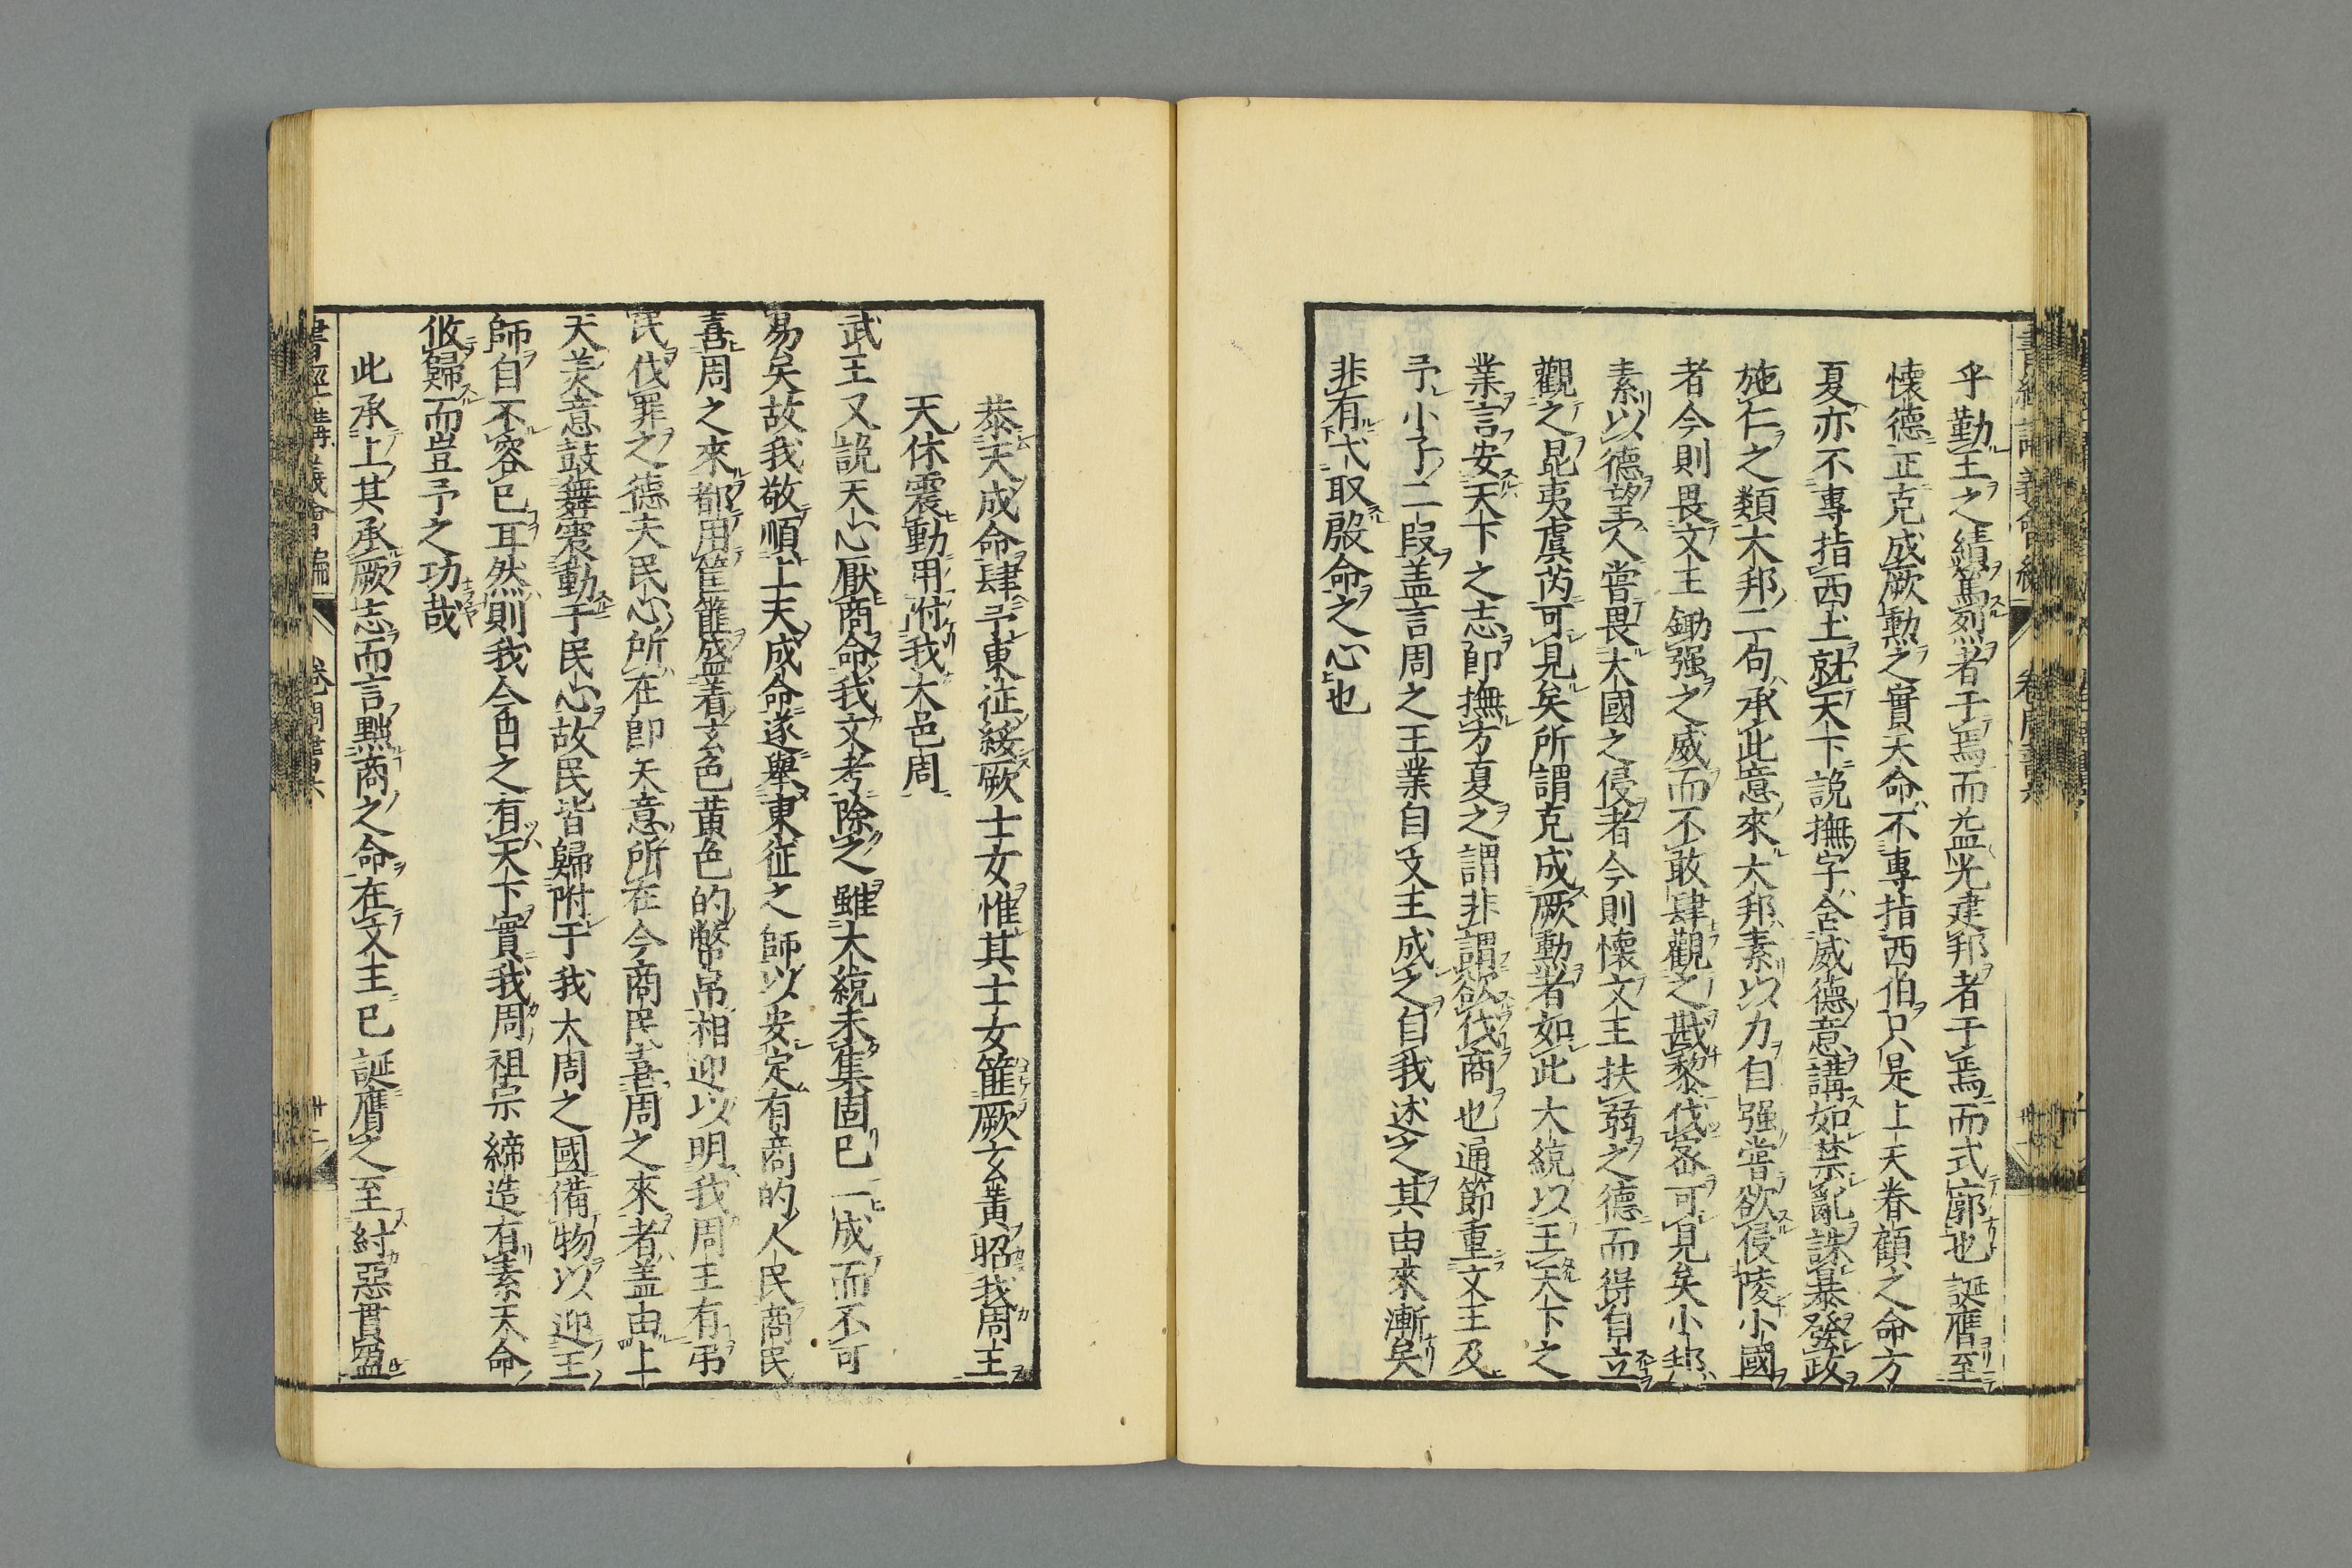 乎勤王之績篤烈者于焉而益光建邦者于焉而式廓也誕膺至
懷德正克成厥勲之實天命不專指西伯只是上天眷顧之命方
夏亦不專指西土就天下說撫字含威德意講如禁亂誅暴發政
施仁之類大邦二句承此意來大邦素以力自强嘗欲侵陵小國
者今則畏文王鋤强之威而不敢肆觀之戡黎伐密可見矣小邦
素以德望人嘗畏大國之侵者今則懷文王扶弱之德而得自立
觀之昆夷虞芮可見矣所謂克成厥勲者如此大統以王天下之
業言安天下之志即撫方夏之謂非謂欲伐商也通節重文王及
予小子二段盖言周之王業自文王成之自我述之其由來漸矣
非有弋取殷命之心也
恭天成命肆予東征綏厥士女惟其士女篚厥玄黄昭我周王
天休震動用附我大邑周
武王又說天心厭商命我文考除之雖大統未集固已一成而不可
易矣故我敬順上天成命遂舉東征之師以安定有商的人民商民
喜周之來都用筐篚盛着玄色黄色的幣帛相迎以明我周王有弔
民伐罪之德夫民心所在即天意所在今商民喜周之來者盖由上
天美意鼓舞震動于民心故民皆歸附于我大周之國備物以迎王
師自不容已耳然則我今日之有天下實我周祖宗締造有素天命
攸歸而豈予之功哉
此承上其承厥志而言黜商之命在文王已誕膺之至紂惡貫盈
書經講義會編
卷 周書六
廿二